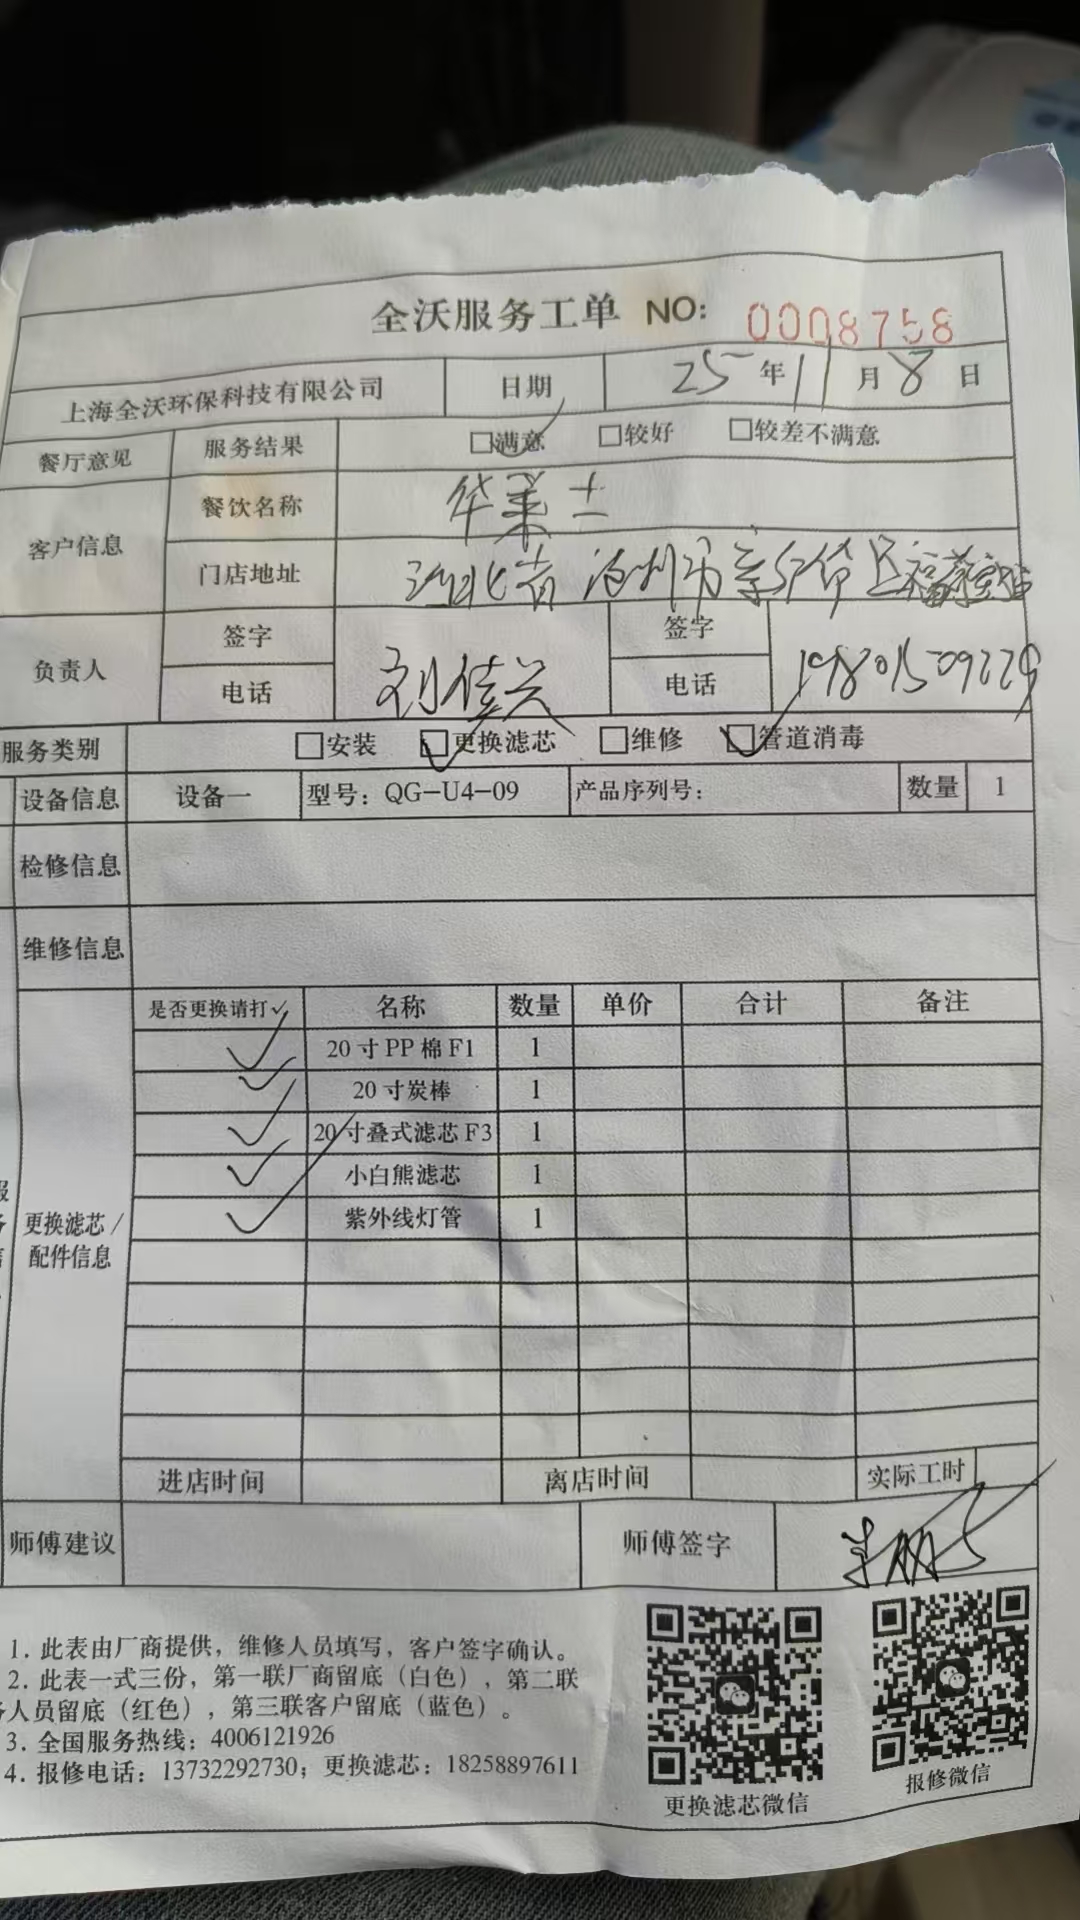 全沃服务工单 NO: 0008758
上海全沃环保科技有限公司 日期 25年11月8日
餐厅意见 服务结果 □满意 □较好 □较差不满意
客户信息 餐饮名称 华莱士
门店地址 河北省沧州市新华区
负责人 签字 电话 刘佳兴 签字 电话
服务类别 □安装 □更换滤芯 □维修 □管道消毒
设备信息 设备一 型号：QG-U4-09 产品序列号： 数量 1
检修信息
维修信息
更换滤芯/配件信息
是否更换请打✓ 名称 数量 单价 合计 备注
✓ 20寸PP棉F1 1
✓ 20寸炭棒 1
✓ 20寸叠式滤芯F3 1
✓ 小白熊滤芯 1
✓ 紫外线灯管 1
进店时间 离店时间 实际工时
师傅建议 师傅签字
1. 此表由厂商提供，维修人员填写，客户签字确认。
2. 此表一式三份，第一联厂商留底（白色），第二联
人员留底（红色），第三联客户留底（蓝色）。
3. 全国服务热线：4006121926
4. 报修电话：13732292730；更换滤芯：18258897611
更换滤芯微信
报修微信